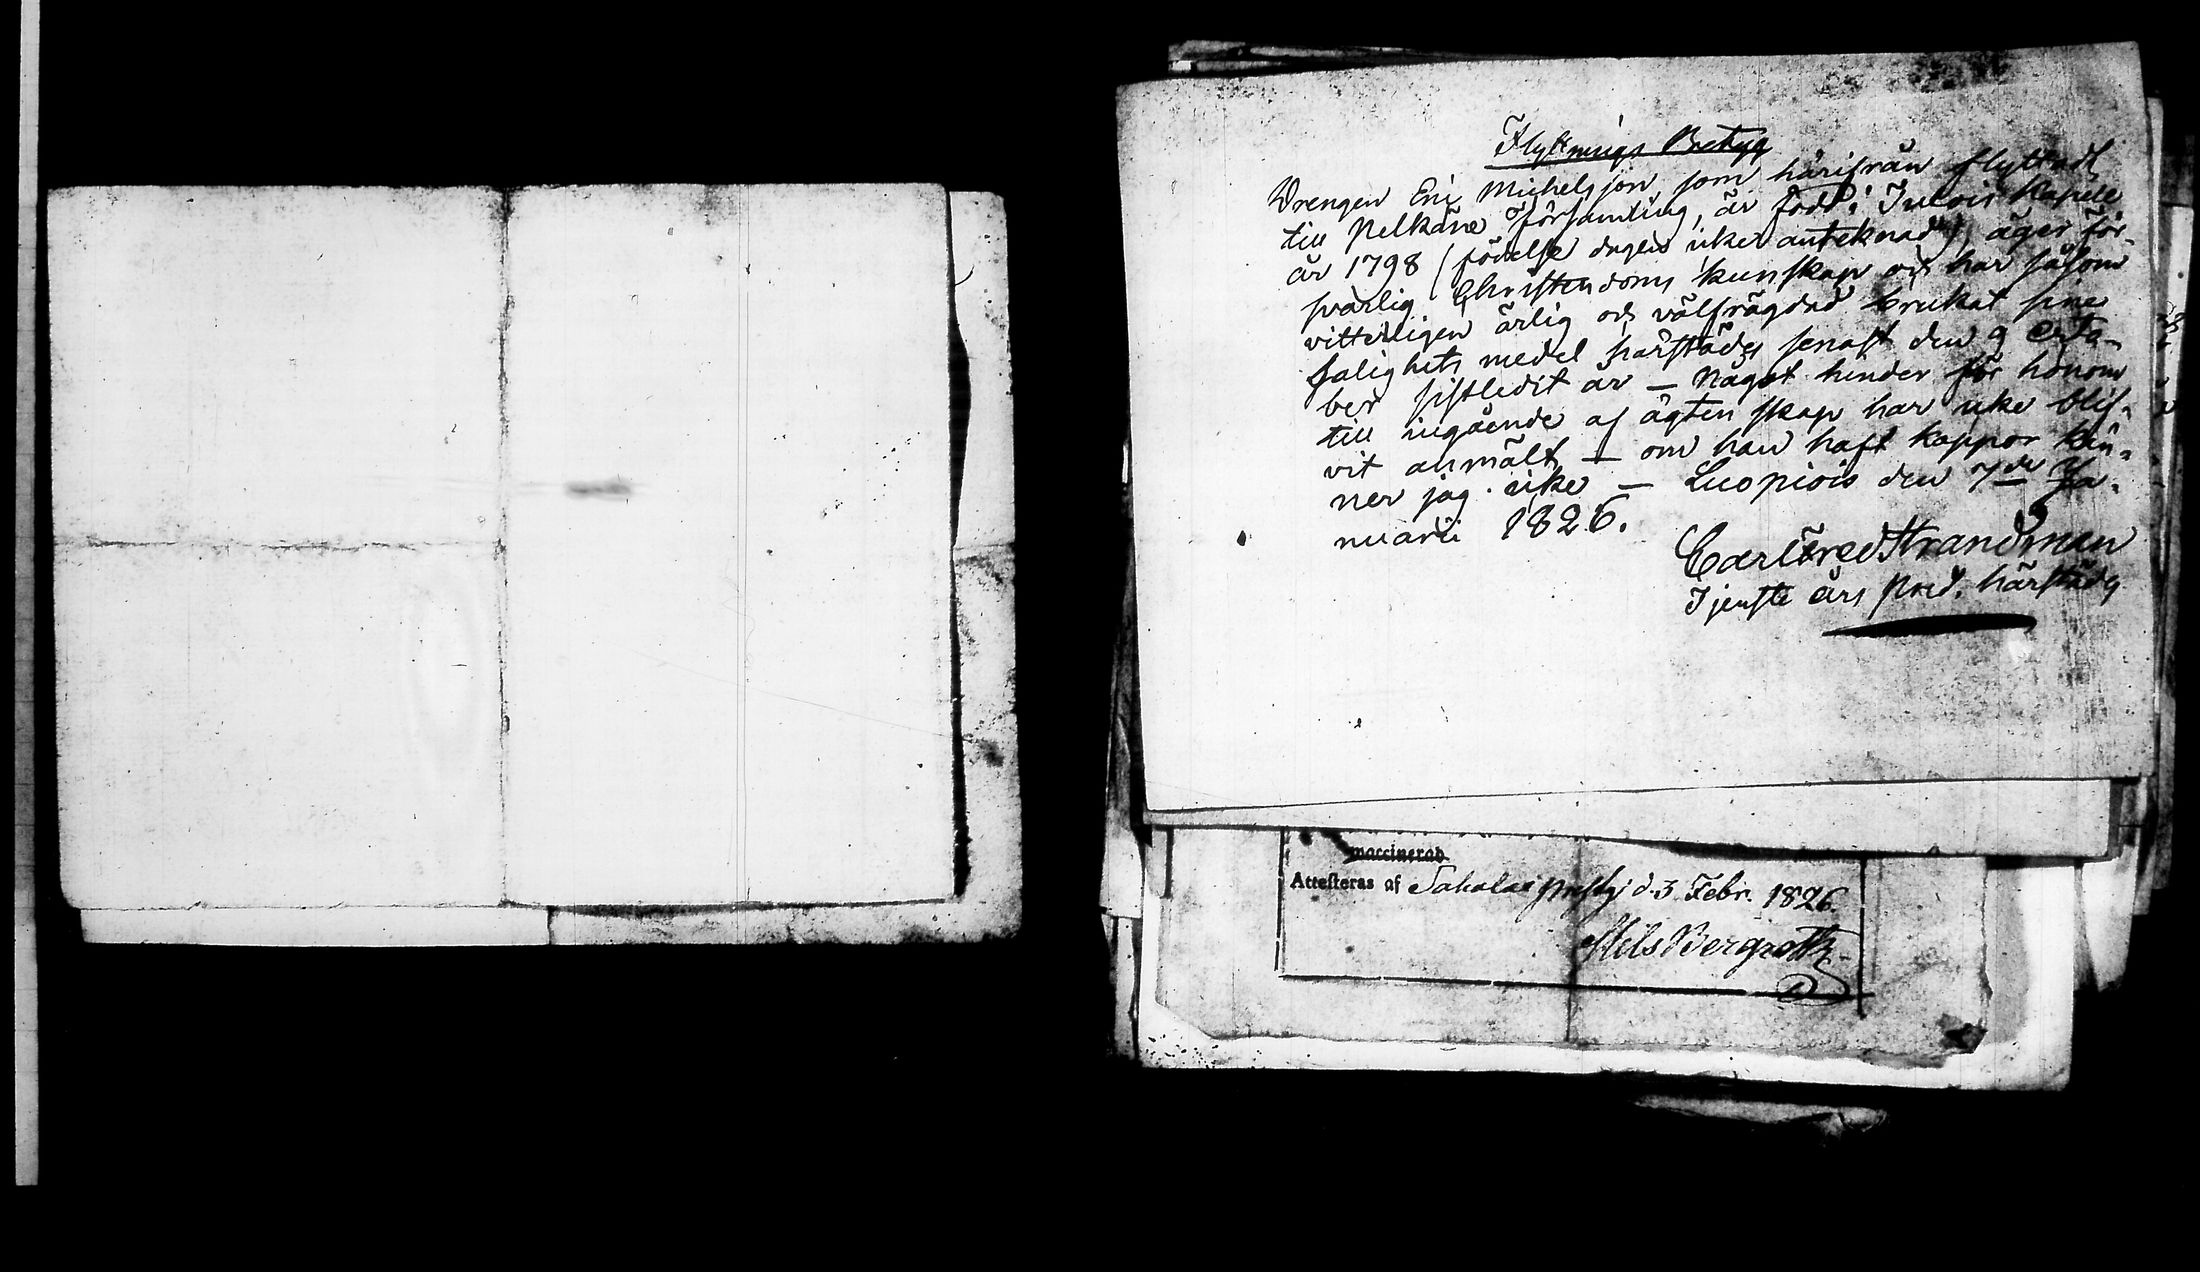 Flyttnings Betyg
Drengen Eric Michelsson, som härifrån flyttadt
till Pelkäne Församling, är född i Juloi Kapell
år 1798 (födelse dagen icke anteknad), äger för-
svarlig Christendoms kunskap och har såsom
vitterligen ärlig och välfrägdad brukat sine
salighets medel härstädes senast den 9 Octo-
ber sistledit år — Något hinder för honom
till ingående af ägtenskap har icke blif-
vit anmält — om han haft koppor kän-
ner jag icke — Luopiois den 7de Ja-
nuarii 1826.
Carl Fred Strandman
Tjenste års Pred. härstädes
vaccinerad
Attesteras af Sahalax prestg. d. 3 Febr. 1826.
Nils Bergroth